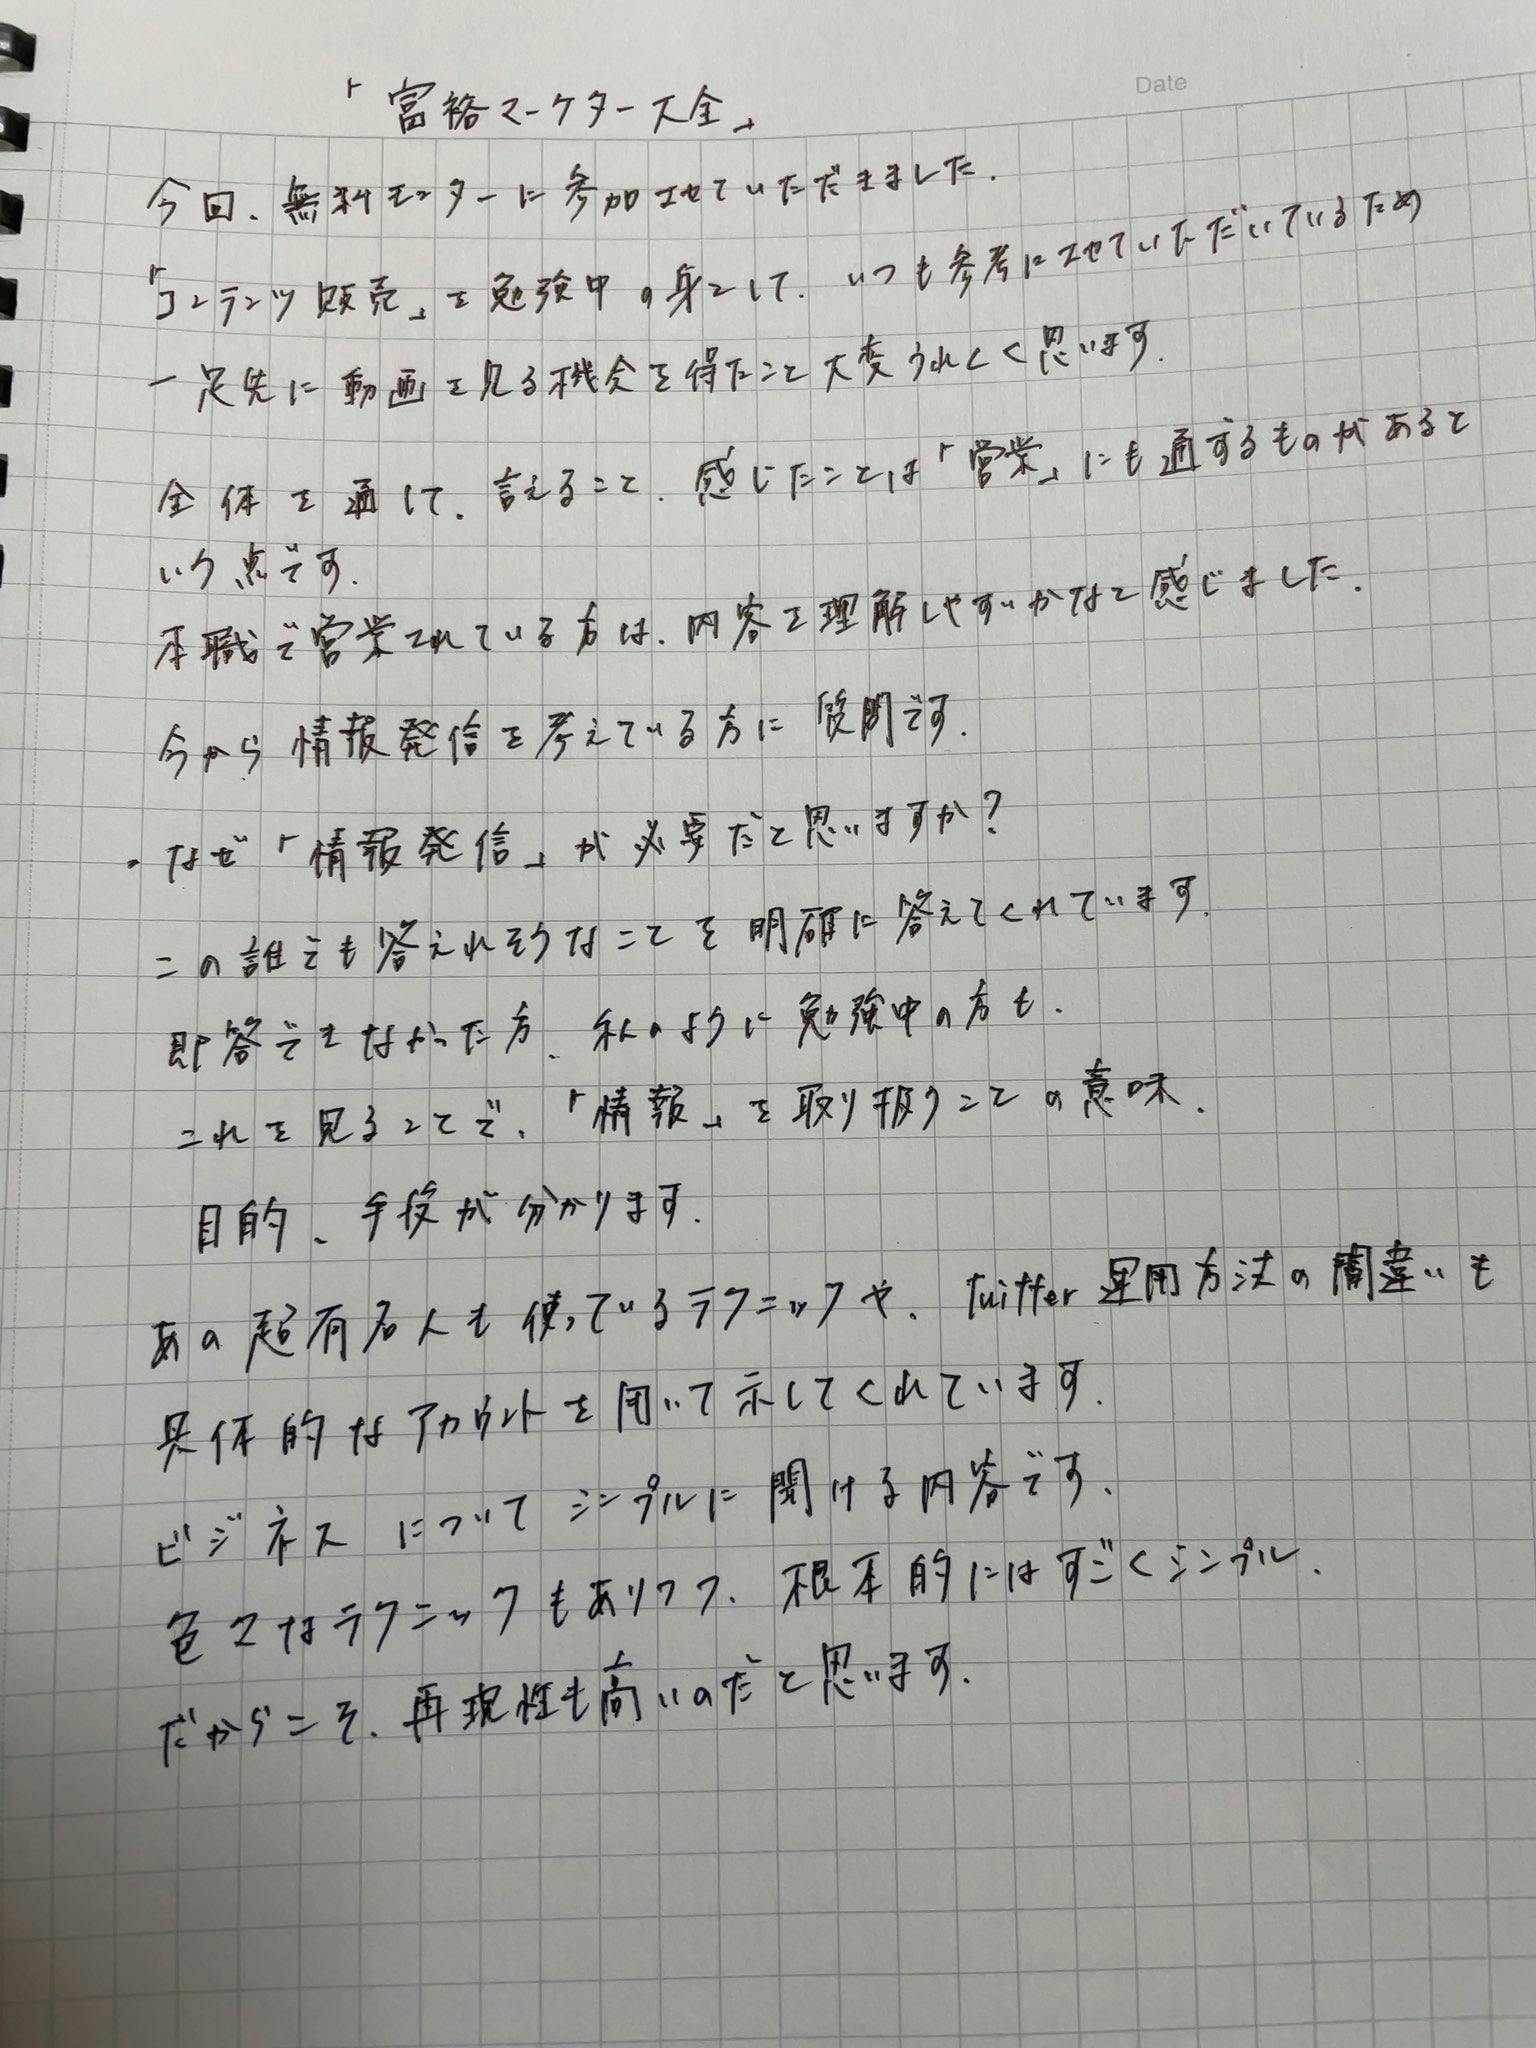 Date
「富裕マーケター大全」
今回、無料モニターに参加させていただきました.
「コンテンツ販売」を勉強中の身として、いつも参考にさせていただいているため
一足先に動画を見る機会を得たこと大変うれしく思います.
全体を通して、言えること、感じたことは「営業」にも通ずるものがあると
いう点です.
本職で営業されている方は、内容を理解しやすいかなと感じました.
今から情報発信を考えている方に質問です.
・なぜ「情報発信」が必要だと思いますか?
この誰でも答えれそうなことを明確に答えてくれています.
即答できなかった方、私のように勉強中の方も、
これを見ることで、「情報」を取り扱うことの意味、
目的、手段が分かります.
あの超有名人も使っているテクニックや、twitter運用方法の間違いも
具体的なアカウントを用いて示してくれています.
ビジネスについてシンプルに聞ける内容です.
色々なテクニックもありつつ、根本的にはすごくシンプル.
だからこそ、再現性も高いのだと思います.